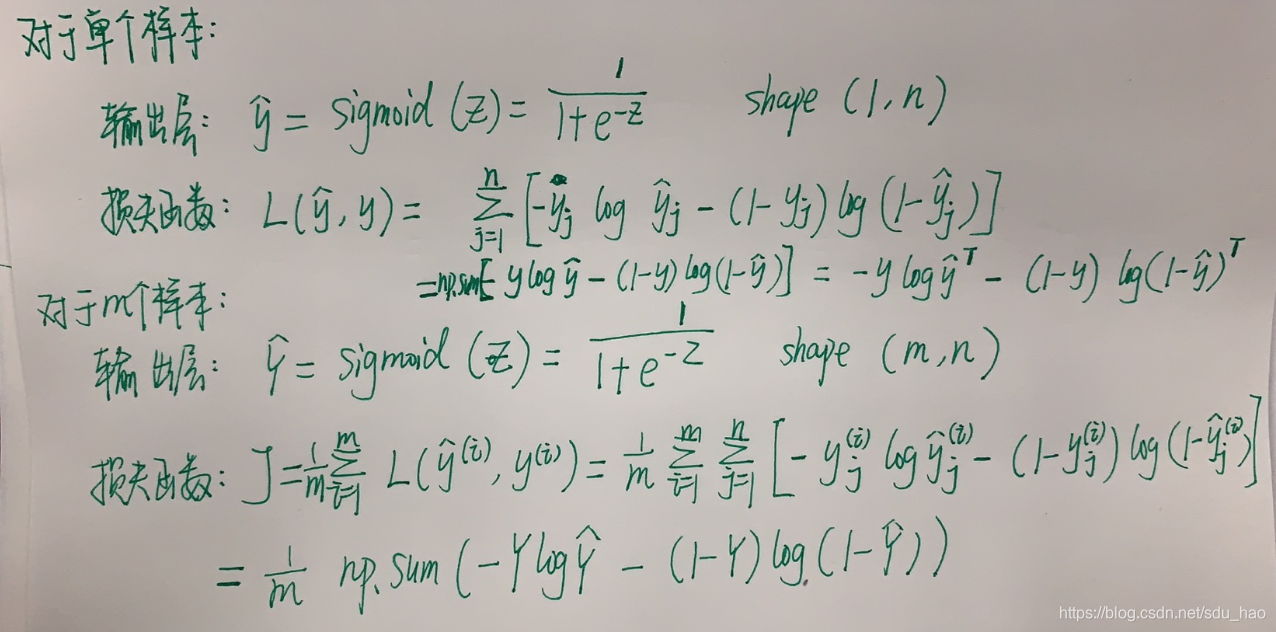 对于单个样本:
输出层: ŷ = sigmoid (z) = 1/(1+e^{-z}) shape (1, n)
损失函数: L(ŷ, y) = ∑_{j=1}^{n} [-y_j log ŷ_j - (1-y_j) log (1-ŷ_j)]
= np.sum[- y log ŷ - (1-y) log(1-ŷ)] = -y log ŷ^T - (1-y) log(1-ŷ)^T
对于m个样本:
输出层: Ŷ = sigmoid (Z) = 1/(1+e^{-Z}) shape (m, n)
损失函数: J = 1/m ∑_{i=1}^{m} L(ŷ^{(i)}, y^{(i)}) = 1/m ∑_{i=1}^{m} ∑_{j=1}^{n} [-y_j^{(i)} log ŷ_j^{(i)} - (1-y_j^{(i)}) log (1-ŷ_j^{(i)})]
= 1/m np.sum (-Y log Ŷ - (1-Y) log (1-Ŷ))
https://blog.csdn.net/sdu_hao